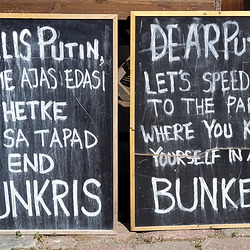 LLIS PUTIN,
ME AJAS EDASI
HETKE
SA TAPAD
END
UNKRIS
DEAR PUT
LET'S SPEED
TO THE PA
WHERE YOU K
YOURSELF IN A
BUNKE